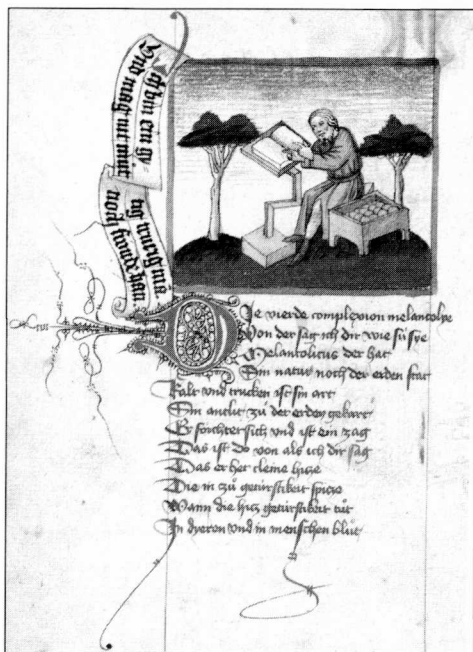 Ich bin ein gy
Vnd mag nit mut
tig trurig mā
noch froude han
Die vierde complexion melancolye
Von der sag ich dir wie sü sye
Melancolicus der hat
Sin natur noch der erden stat
Kalt vnd trucken ist sin art
Sin antlit zů der erden gekart
Er förchtet sich vnd ist ein zag
Das ist do von als ich dir sag
Das er het cleine hicze
Die in zů getürstikeit spicze
Wann die hicz getürstikeit tůt
In dyeren vnd in menschen blůt